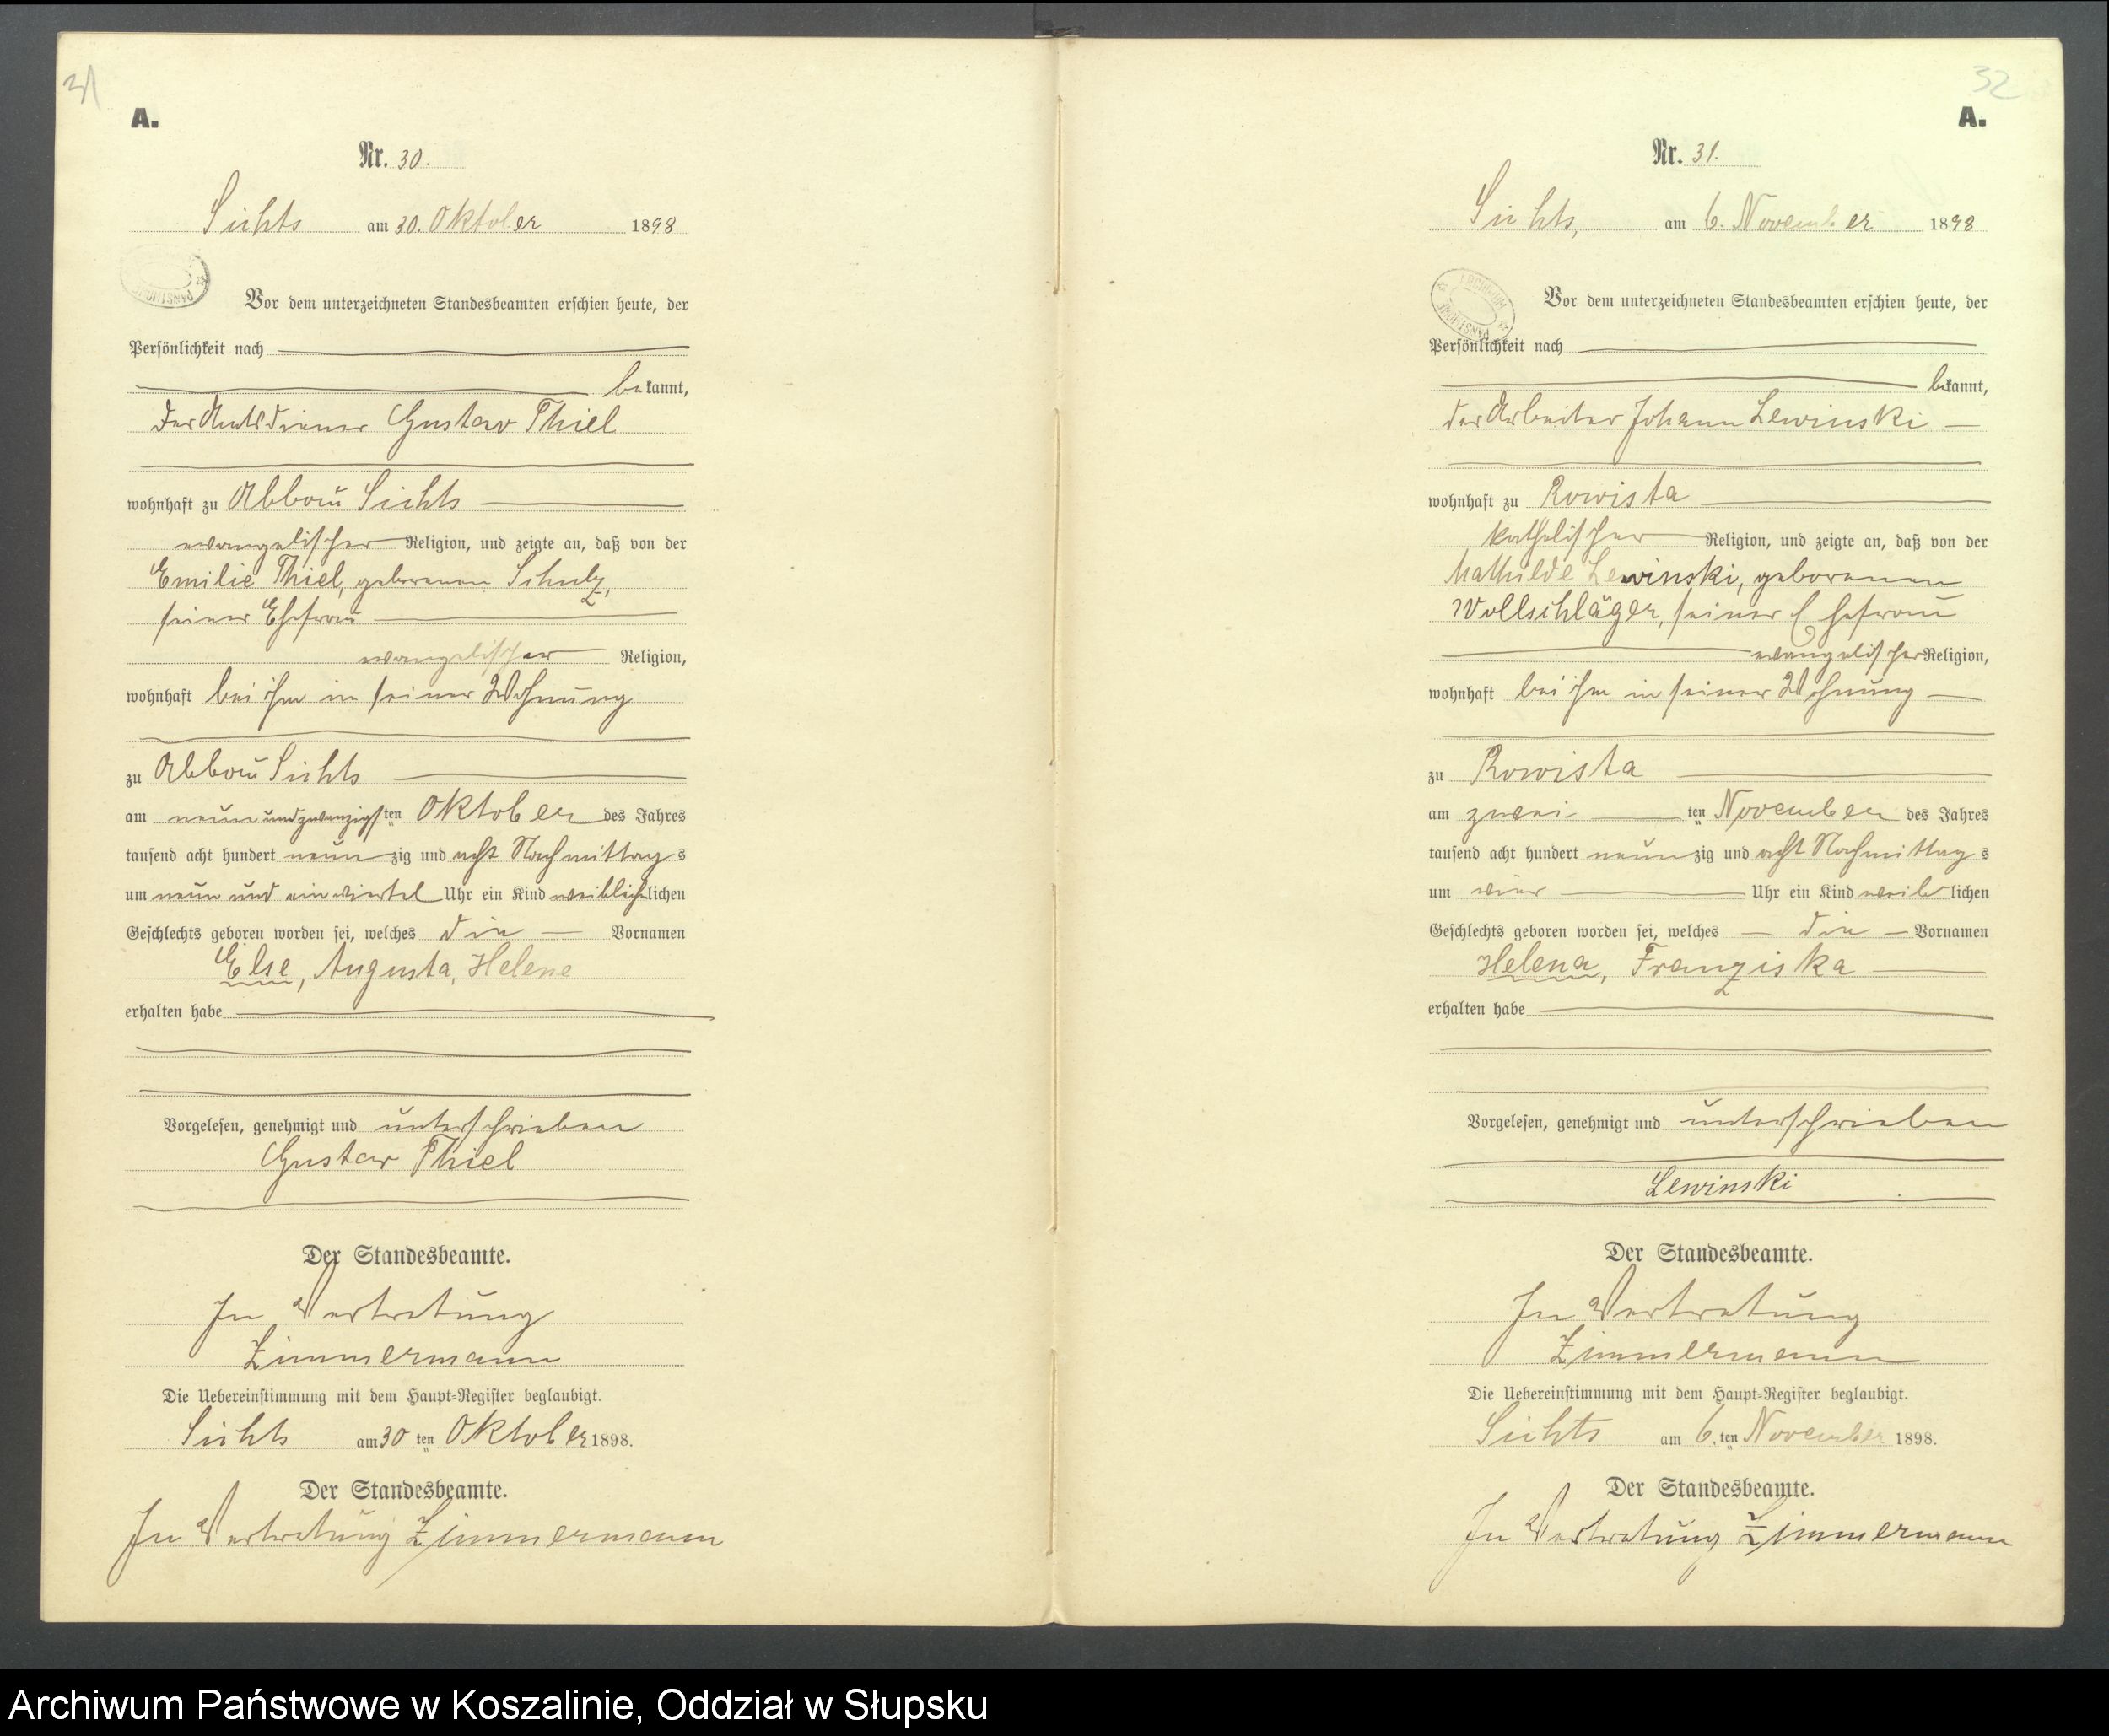 31
A.
Nr. 30.
Lichts am 30. Oktober 1898
Vor dem unterzeichneten Standesbeamten erschien heute, der
Persönlichkeit nach
bekannt,
der Amtsdiener Gustav Thiel
wohnhaft zu Abbau Lichts
evangelischer Religion, und zeigte an, daß von der
Emilie Thiel, geborenen Schulz,
seiner Ehefrau
evangelischer Religion,
wohnhaft bei ihm in seiner Wohnung
zu Abbau Lichts
am neun und zwanzigsten Oktober des Jahres
tausend acht hundert neunzig und acht Nachmittags
um neun und ein viertel Uhr ein Kind weiblichlichen
Geschlechts geboren worden sei, welches die Vornamen
Else, Augusta, Helene
erhalten habe
Vorgelesen, genehmigt und unterschrieben
Gustav Thiel
Der Standesbeamte.
In Vertretung
Zimmermann
Die Uebereinstimmung mit dem Haupt-Register beglaubigt.
Lichts am 30 ten Oktober 1898.
Der Standesbeamte.
In Vertretung Zimmermann
32
A.
Nr. 31.
Lichts, am 6. November 1898
ARCHIWUM PAŃSTWOWE
Vor dem unterzeichneten Standesbeamten erschien heute, der
Persönlichkeit nach
bekannt,
der Arbeiter Johann Lewinski
wohnhaft zu Rowista
katholischer Religion, und zeigte an, daß von der
Mathilde Lewinski, geborenen
Wollschläger, seiner Ehefrau
evangelischer Religion,
wohnhaft bei ihm in seiner Wohnung
zu Rowista
am zwei ten November des Jahres
tausend acht hundert neunzig und acht Nachmittags
um vier Uhr ein Kind weiblichen
Geschlechts geboren worden sei, welches die Vornamen
Helena, Franziska
erhalten habe
Vorgelesen, genehmigt und unterschrieben
Lewinski
Der Standesbeamte.
In Vertretung
Zimmermann
Die Uebereinstimmung mit dem Haupt-Register beglaubigt.
Lichts am 6. ten November 1898.
Der Standesbeamte.
In Vertretung Zimmermann
Archiwum Państwowe w Koszalinie, Oddział w Słupsku